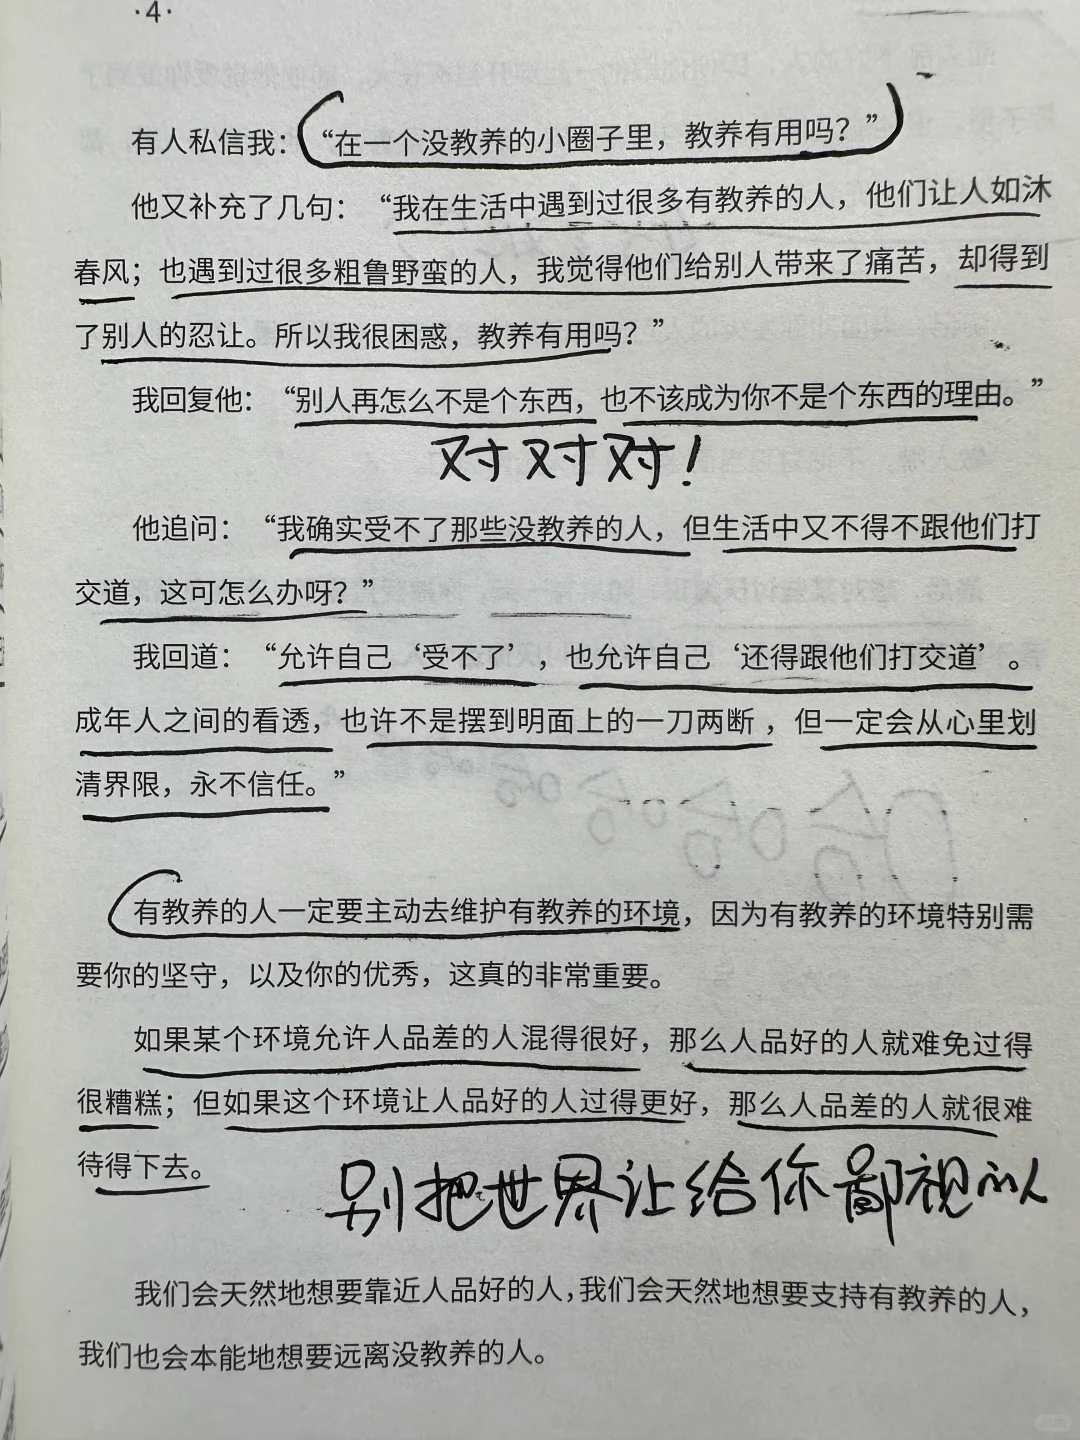 ·4·
有人私信我：“在一个没教养的小圈子里，教养有用吗？”
他又补充了几句：“我在生活中遇到过很多有教养的人，他们让人如沐
春风；也遇到过很多粗鲁野蛮的人，我觉得他们给别人带来了痛苦，却得到
了别人的忍让。所以我很困惑，教养有用吗？”
我回复他：“别人再怎么不是个东西，也不该成为你不是个东西的理由。”
对对对！
他追问：“我确实受不了那些没教养的人，但生活中又不得不跟他们打
交道，这可怎么办呀？”
我回道：“允许自己‘受不了’，也允许自己‘还得跟他们打交道’。
成年人之间的看透，也许不是摆到明面上的一刀两断，但一定会从心里划
清界限，永不信任。”
有教养的人一定要主动去维护有教养的环境，因为有教养的环境特别需
要你的坚守，以及你的优秀，这真的非常重要。
如果某个环境允许人品差的人混得很好，那么人品好的人就难免过得
很糟糕；但如果这个环境让人品好的人过得更好，那么人品差的人就很难
待得下去。
别把世界让给你鄙视的人
我们会天然地想要靠近人品好的人，我们会天然地想要支持有教养的人，
我们也会本能地想要远离没教养的人。